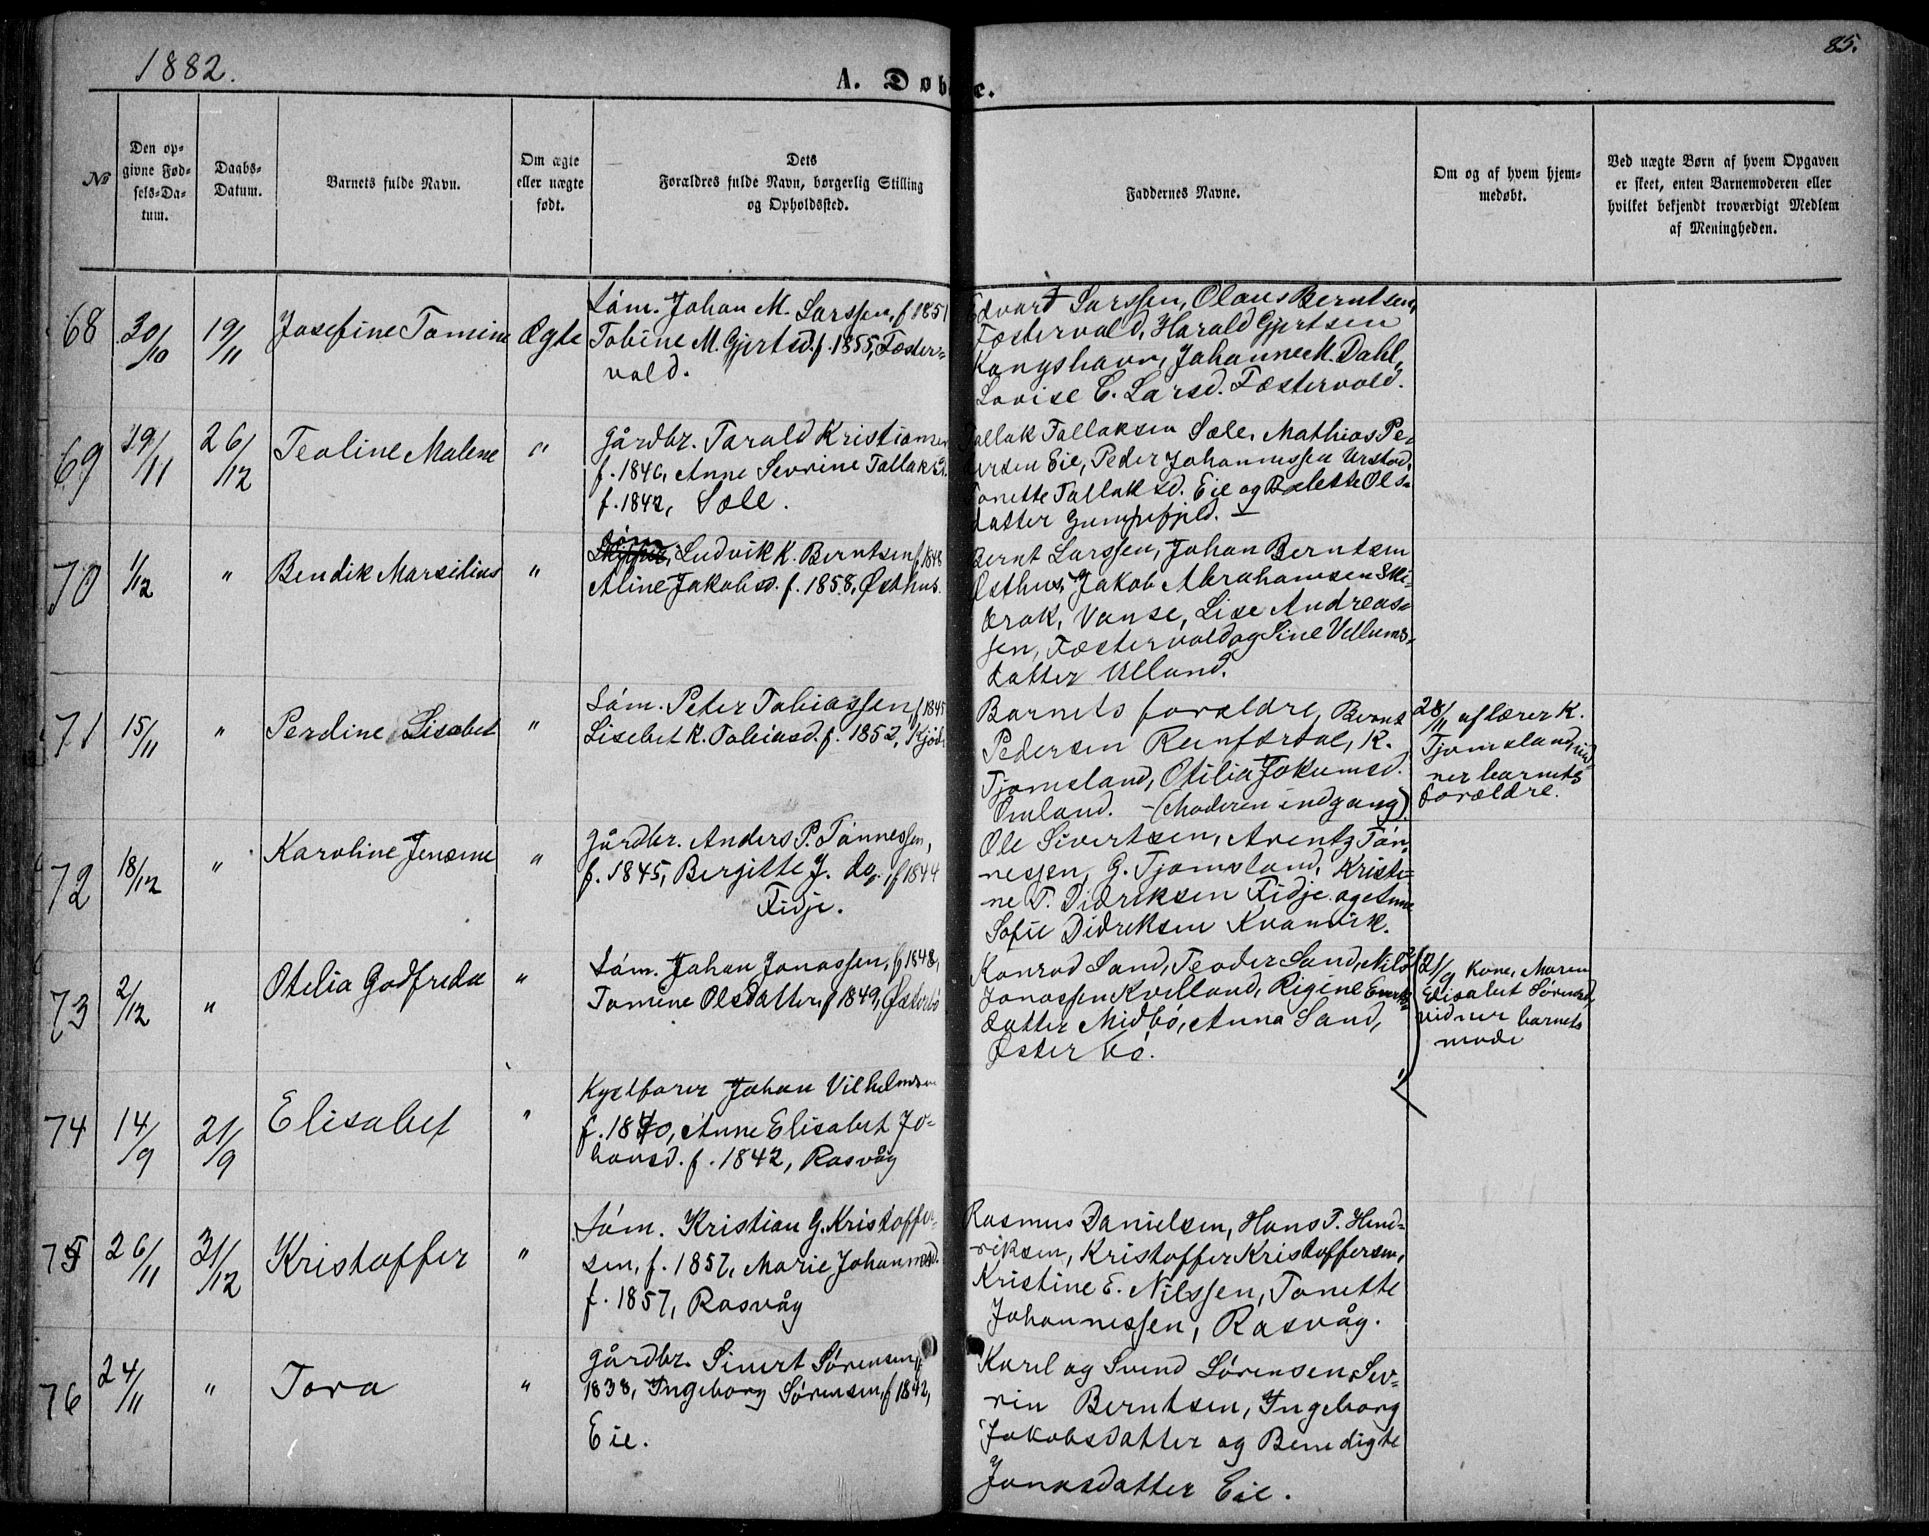 1882.
85.
A. Døbte.
№
Den opgivne Fødsels-Datum.
Daabs-Datum.
Barnets fulde Navn.
Om ægte eller uægte født.
Dets Forældres fulde Navn, borgerlig Stilling og Opholdssted.
Faddernes Navne.
Om og af hvem hjemmedøbt.
Ved uægte Børn af hvem Opgaven er skeet, enten Barnemoderen eller hvilket bekjendt troværdigt Medlem af Menigheden.
68 30/10 19/11 Josefine Tomine Ægte
Søm. Johan M. Larssen, f 1851
Tobine M. Gjertsd. f. 1855, Fæster-
vold.
Edvart Larssen, Olaus Berntsen,
Fæstervold, Harald Gjertsen
Kongshavn, Johanne M. Dahl,
Lovise C. Larsd. Fæstervold.
69 19/11 26/12 Teoline Malene "
Gårdbr. Tarald Kristiansen
f. 1846, Anne Sevrine Tallaksd.
f. 1842, Sæle.
Tallak Tallaksen Sæle, Mathias Pe-
dersen Eie, Peder Johannessen Urstad,
Tonette Tallaksd. Eie og Bolette Ols-
datter Gumpefjeld.
70 1/12 " Bendik Marsilius "
Søm. Ludvik K. Berntsen f 1848
Aline Jakobsd. f. 1858, Østhus.
Bernt Larssen, Johan Berntsen
Østhus, Jakob Abrahamsen Ski-
Vanse, Lise Andreas-
sen, Fæstervold og Sine Vellums-
datter Ulland.
71 15/11 " Perdine Lisabet "
Søm. Peter Tobiassen, f 1845
Lisebet K. Tobiasd. f. 1852,
Barnets forældre, Bernt
Pedersen K.
Tjomsland, Otilia Jokumsd.
Omland. - (Moderen indgang)
28/11 af lærer K.
Tjomsland, vid-
ner barnets
forældre.
72 18/12 " Karoline Jensine "
Gårdbr. Anders P. Tönnessen,
f. 1845, Bergitte J. do, f 1844
Fidje.
Ole Sivertsen, Arentz Tön-
nessen, G. Tjomsland, Kristi-
ne T. Didriksen Fidje og
Sofie Didriksen Kvanvik.
73 2/12 " Otelia Godfreda "
Søm. Johan Jonassen, f 1848,
Tomine Olsdatter, f 1849, Østerbö
Konrad Sand, Teodor Sand, Nils
Jonassen Kvelland, Rigine
datter Midbö, Anna Sand,
Østerbö.
21/9 Kone, Maren
Elisabet Sörensd,
vidner barnets
mode
74 14/9 21/9 Elisabet "
Johan Vilhelmsen
f. 1840, Anne Elisabet Jo-
hansd. f. 1842, Rasvåg
75 26/11 31/12 Kristoffer "
Søm. Kristian G. Kristoffer-
sen, f. 1857, Marie Johannesd.
f. 1857, Rasvåg
Rasmus Danielsen, Hans T. Hend-
riksen, Kristoffer Kristoffersen,
Kristine E. Nilssen, Tonette
Johannessen, Rasvåg.
76 24/11 " Tora "
Gårdbr. Sivert Sörensen, f
1838, Ingeborg Sörensen, f 1842,
Eie.
Karl og Svend Sörensen, Sev-
rin Berntsen, Ingeborg
Jakobsdatter og Benedigte
Jonasdatter Eie.